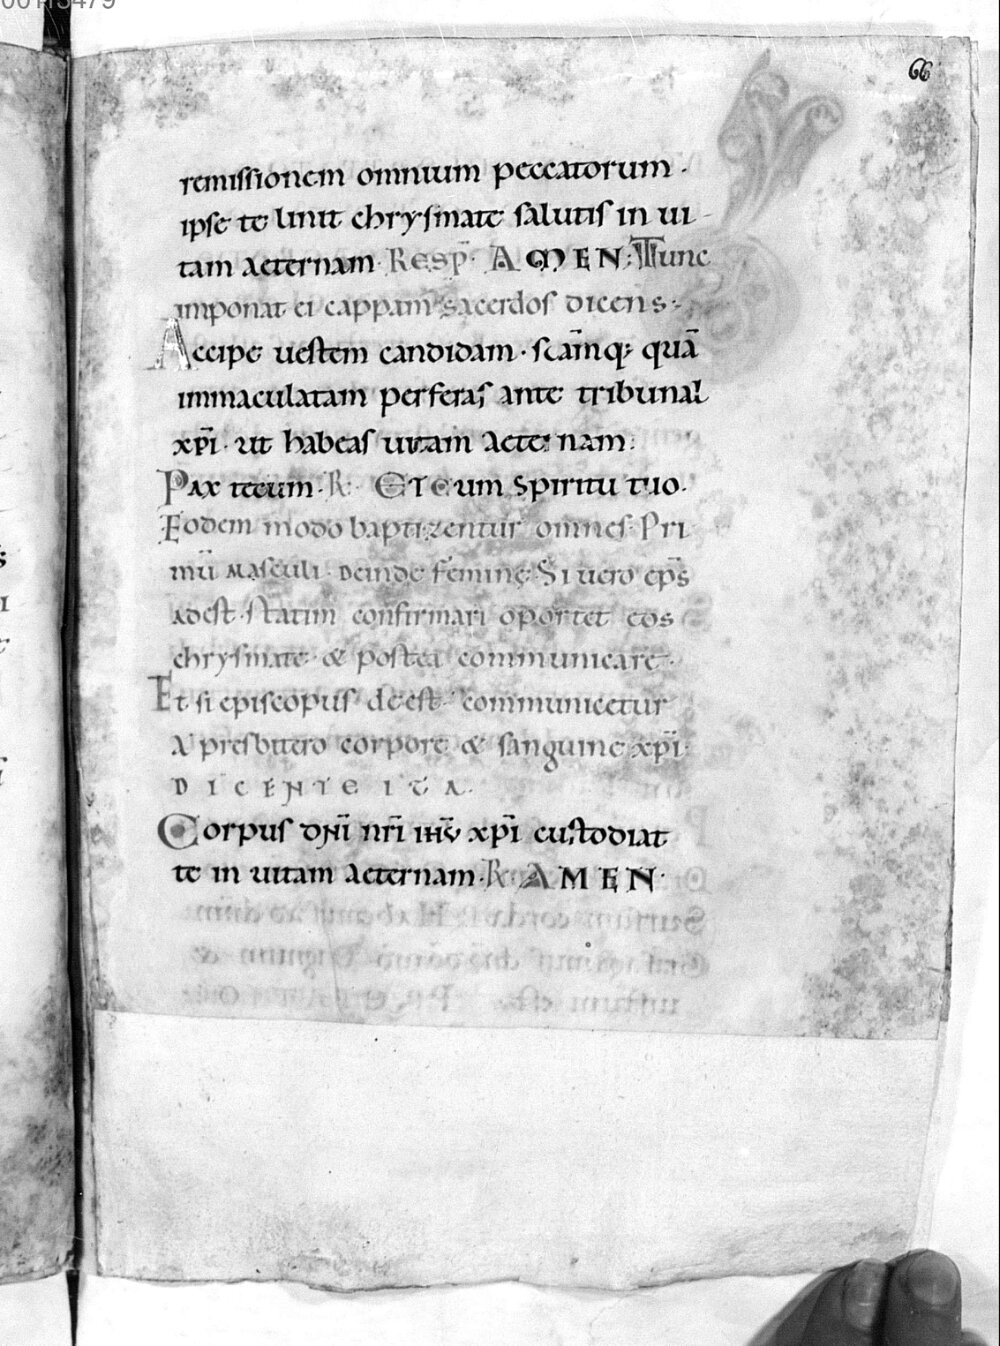 66
remissionem omnium peccatorum ·
ipse te linit chrysmate salutis in ui-
tam aeternam Resp̄· AMEN: Tunc
imponat ei cappam sacerdos dicens:
Accipe uestem candidam · sc̄amq; quā
immaculatam perferas ante tribunal
xp̄i · ut habeas uitam aeternam:
Pax tecum · R: Et cum spiritu tuo·
Eodem modo baptizentur omnes· Pri
mū masculi · deinde feminę· Si uero ep̄s
adest · statim confirmari oportet eos
chrysmate · & postea communicare·
Et si episcopus deest · communicetur
A presbitero corpore & sanguine xp̄i·
DICENTE ITA·
Corpus dn̄i nr̄i ih̄u xp̄i custodiat
te in uitam aeternam · R· AMEN·